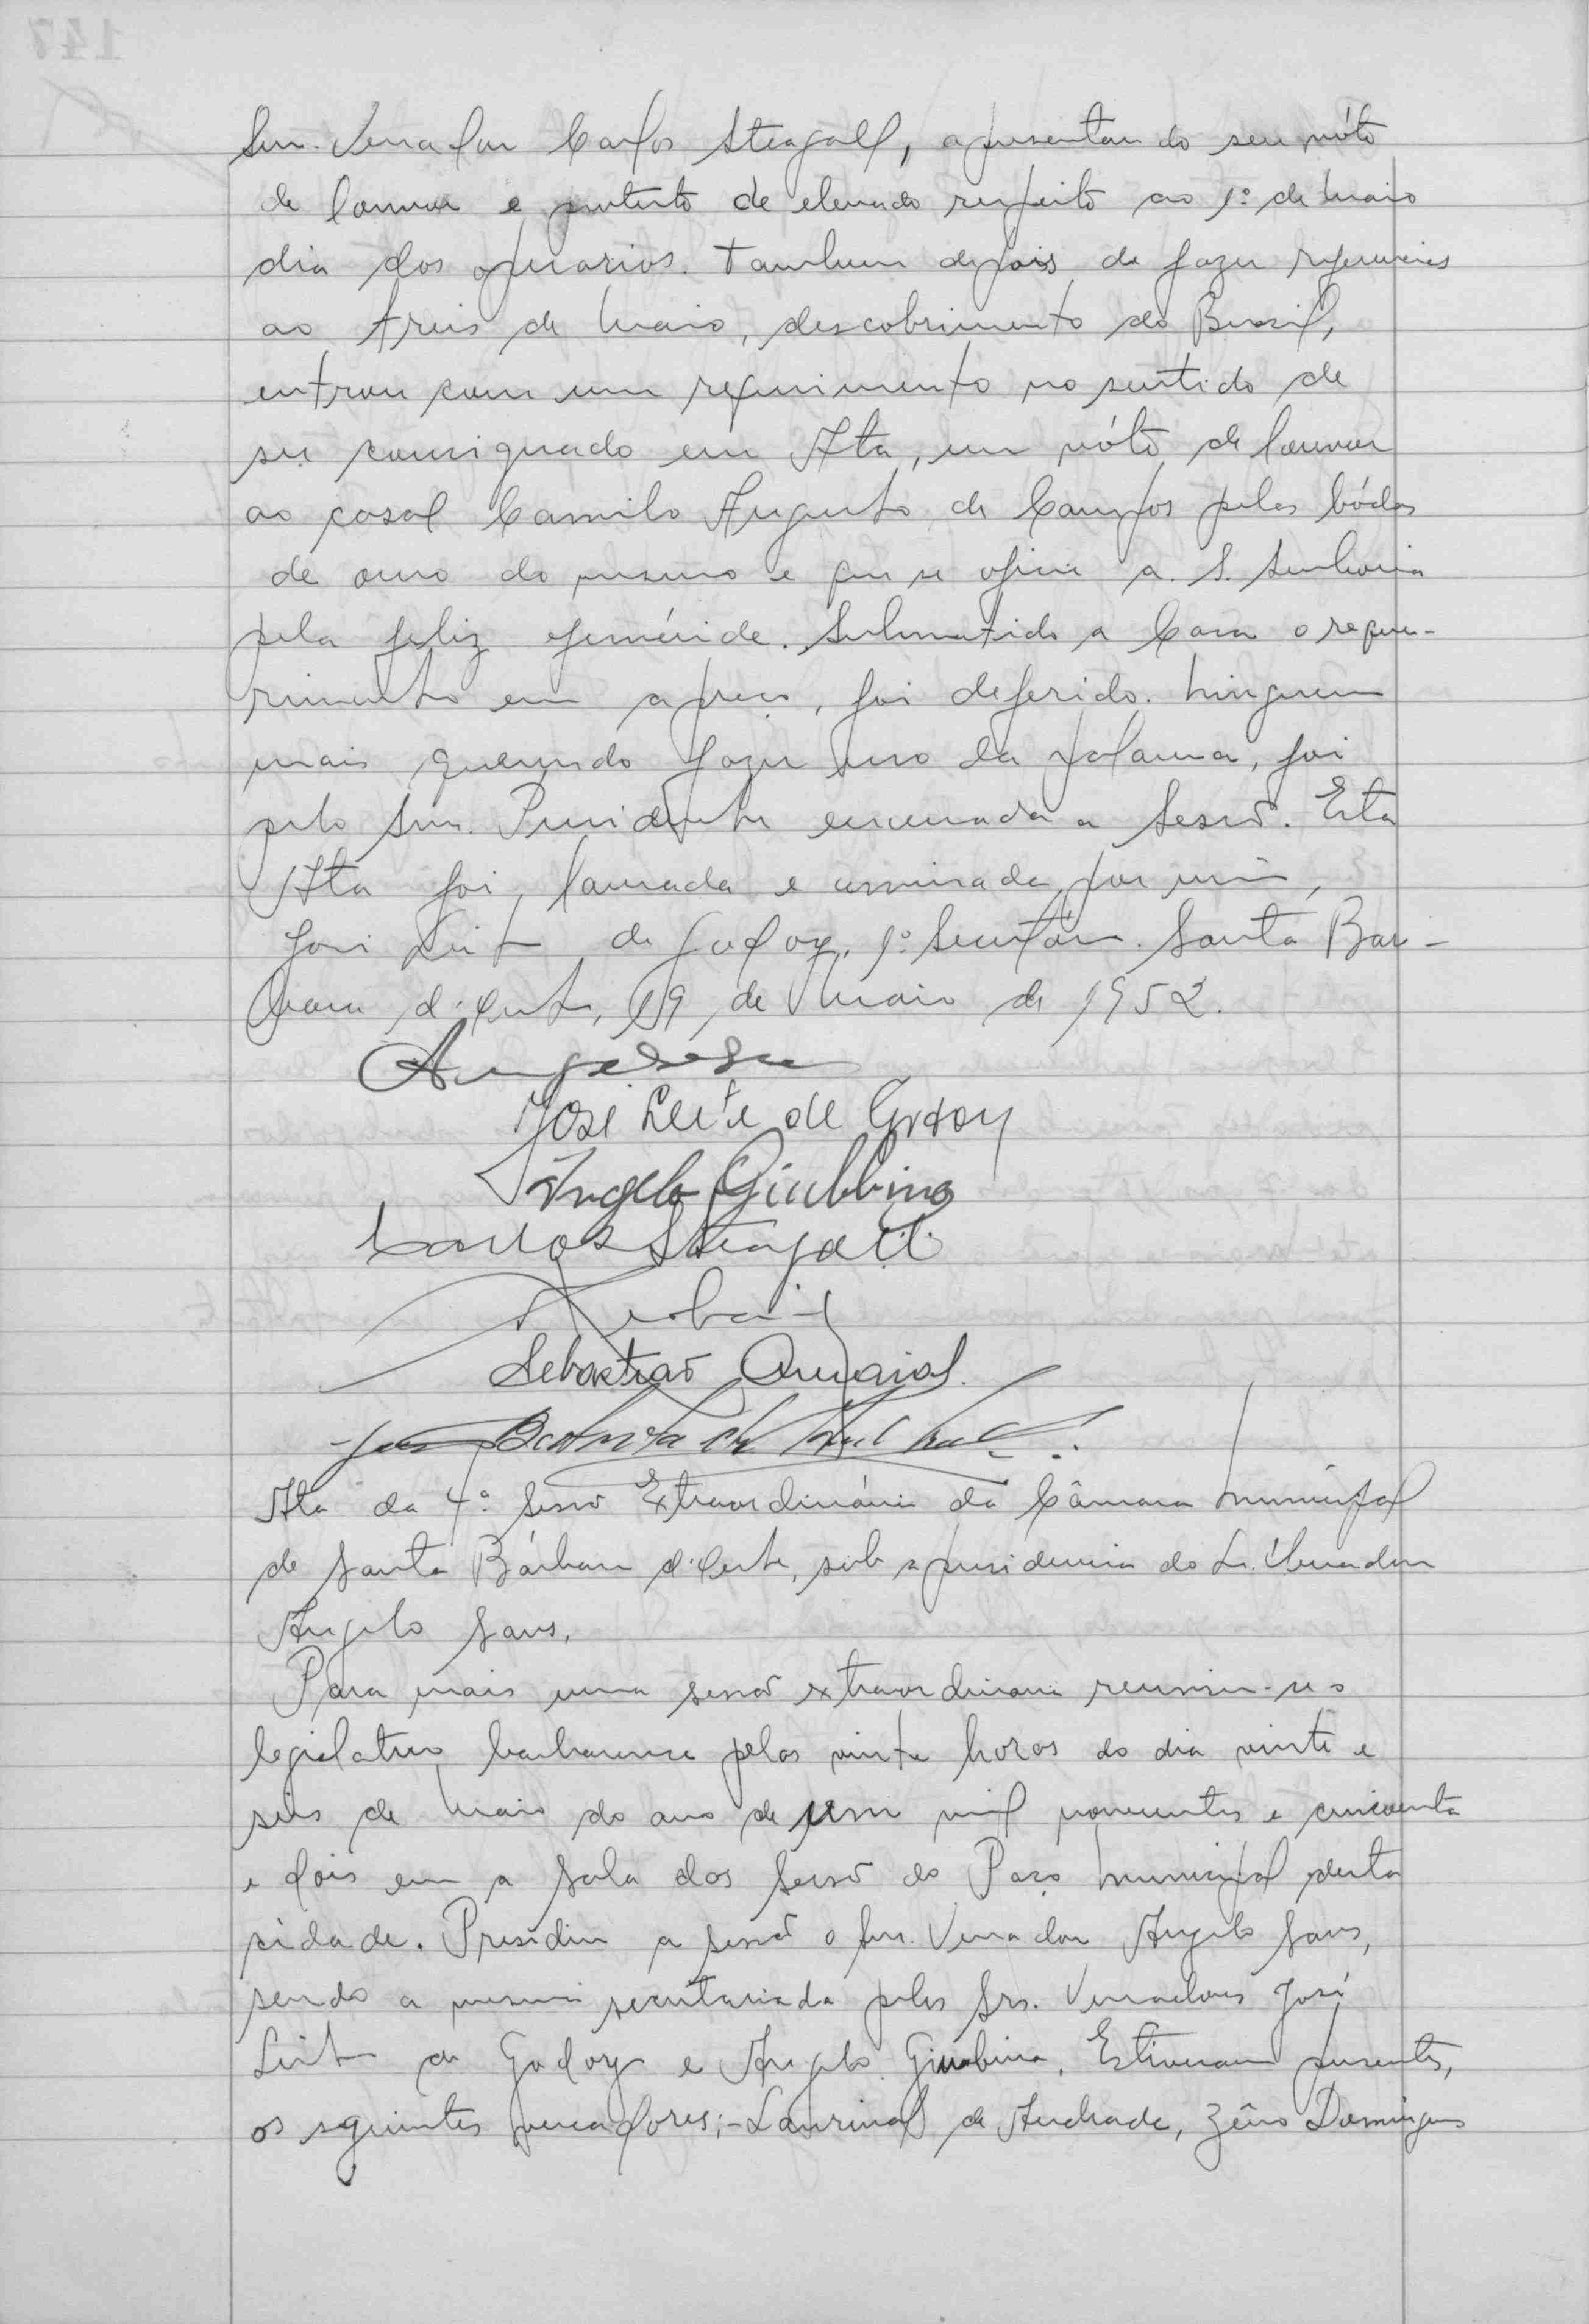 Snr. Vereador Carlos Steagall, apresentando seu vóto
de louvor e protesto de elevado respeito ao 1º de Maio
dia dos operarios. Tambem depois de fazer referencias
ao Treis de Maio, descobrimento do Brasil,
entrou com um requerimento no sentido de
ser consignado em Ata, um vóto de louvor
ao casal Camilo Augusto de Campos pelas bódas
de ouro do mesmo e que se oficie a S. Senhoria
pela feliz efeméride. Submetido a Casa o reque-
rimento em apreço, foi deferido. Ninguem
mais querendo fazer uso da palavra, foi
pelo Snr. Presidente encerrada a Sessão. Esta
Ata foi lavrada e assinada por mim,
José Leite de Godoy, 1º Secretário. Santa Bar-
bara d'Oeste, 19 de Maio de 1952.
José Leite de Godoy
Angelo Giubbina
Carlos Steagall
Sebastião Amaral
Ata da 4ª Sessão Extraordinária da Câmara Municipal
de Santa Bárbara d'Oeste, sob a presidencia do Sr. Vereador
Angelo Sans,
Para mais uma sessão extraordinaria reuniu-se o
legislativo barbarense pelas vinte horas do dia vinte e
seis de Maio do ano de um mil novecentos e cincoenta
e dois em a Sala das Sessões do Paço Municipal desta
cidade. Presidiu a sessão o Snr. Vereador Angelo Sans,
sendo a mesma secretariada pelos Srs. Vereadores José
Leite de Godoy e Angelo Giubbina. Estiveram presentes,
os seguintes vereadores:- Laurival de Andrade, Zêno Domingues